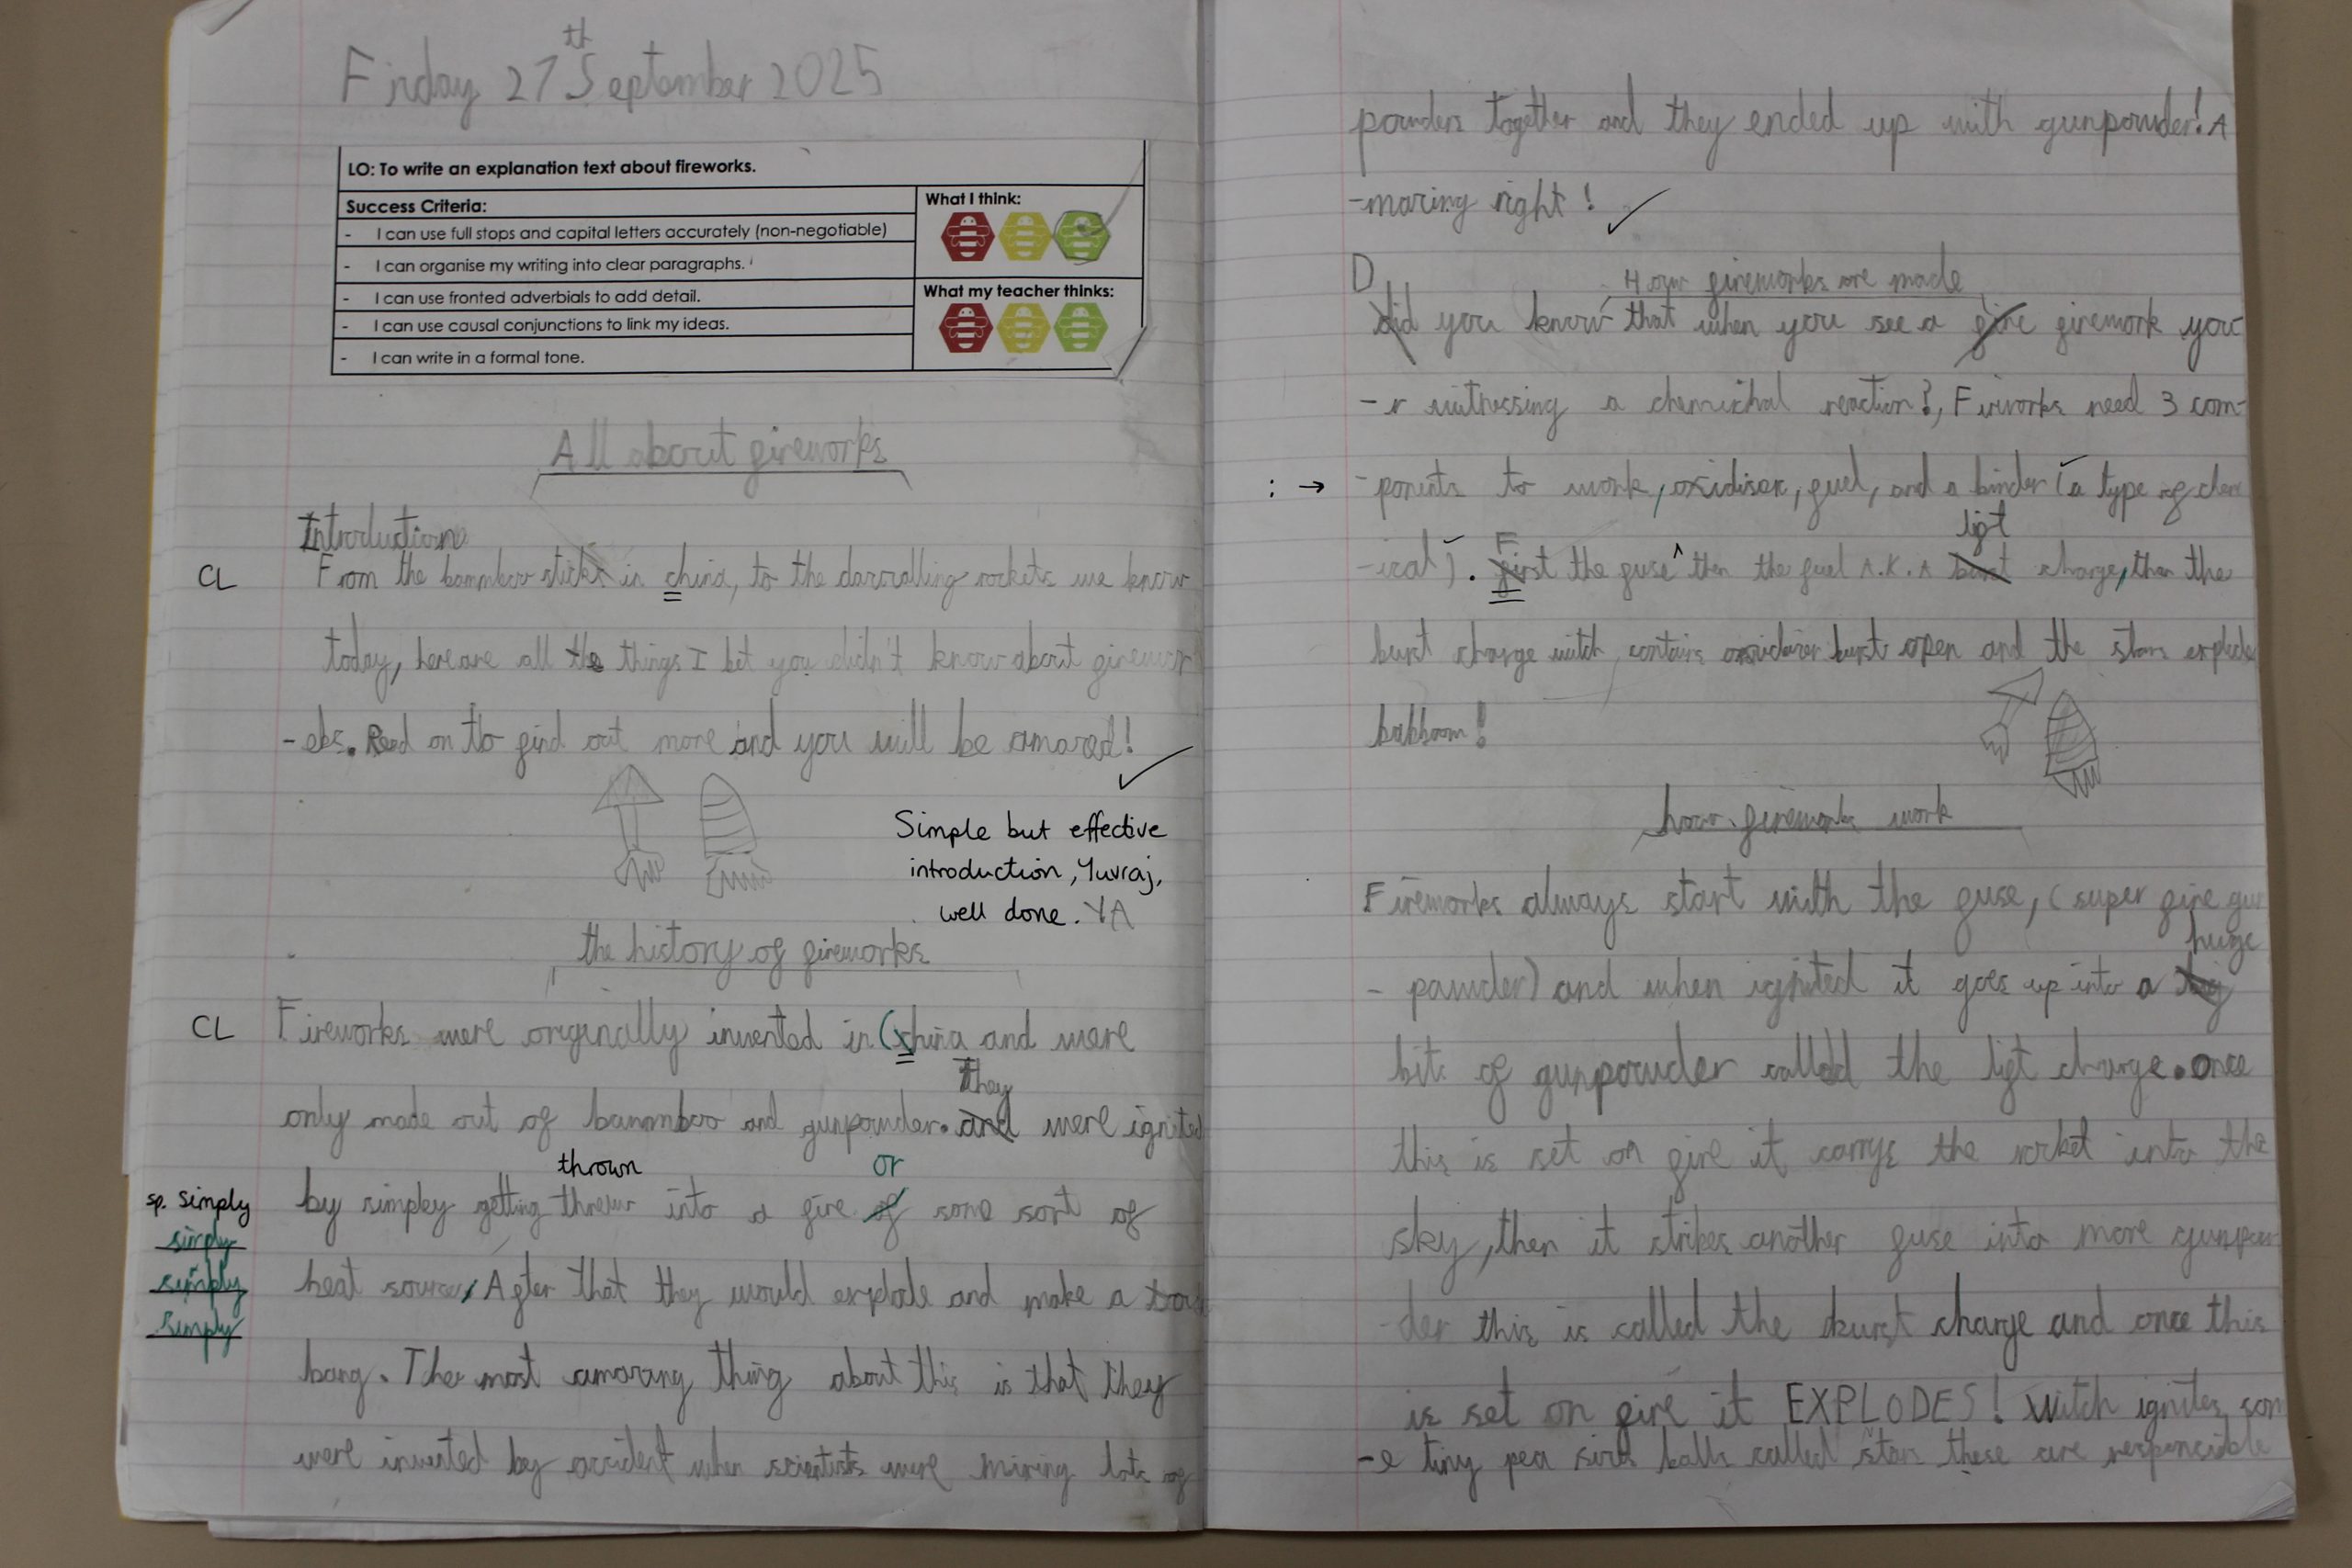 Firday 27th September 2025
LO: To write an explanation text about fireworks.
Success Criteria:
- I can use full stops and capital letters accurately (non-negotiable)
- I can organise my writing into clear paragraphs.
- I can use fronted adverbials to add detail.
- I can use causal conjunctions to link my ideas.
- I can write in a formal tone.
What I think:
What my teacher thinks:
All about fireworks
Introduction
CL
From the bammboo sticks in china, to the rockets we know
today, here are all the things I bet you didn't know about firewor
-eks. Read on to find out more and you will be amazed!
Simple but effective
introduction, Yuvraj,
well done. YA
the history of fireworks
CL
Fireworks were originally invented in China and were
they
only made out of bammboo and gunpowder. and were ignited
thrown or
sp. simply
by simpley getting threw into a fire of some sort of
simply
simply
simply
heat source, After that they would explode and make a
bang. The most amazing thing about this is that they
were invented by accident when scientists were mixing lots of
powders together and they ended up with gunpowder! A
-mazing right!
How fireworks are made
D
did you know that when you see a fire firework you
-r witnessing a chemichal reaction?, Fireworks need 3 com-
: →
-ponents to work, oxidiser, fuel, and a binder (a type of chem
lift
-ical). First the fuse ^ then the fuel A.K.A burst charge, then the
burst charge witch contains burst open and the stars explode
babboom!
how fireworks work
Fireworks always start with the fuse, (super fire gun
huge
- powder) and when ignited it goes up into a big
bits of gunpowder called the lift charge. once
this is set on fire it carrys the rocket into the
sky, then it strikes another fuse into more gunpow
-der this is called the burst charge and once this
is set on fire it EXPLODES! witch ignites som
-e tiny pea balls called stars these are responcible